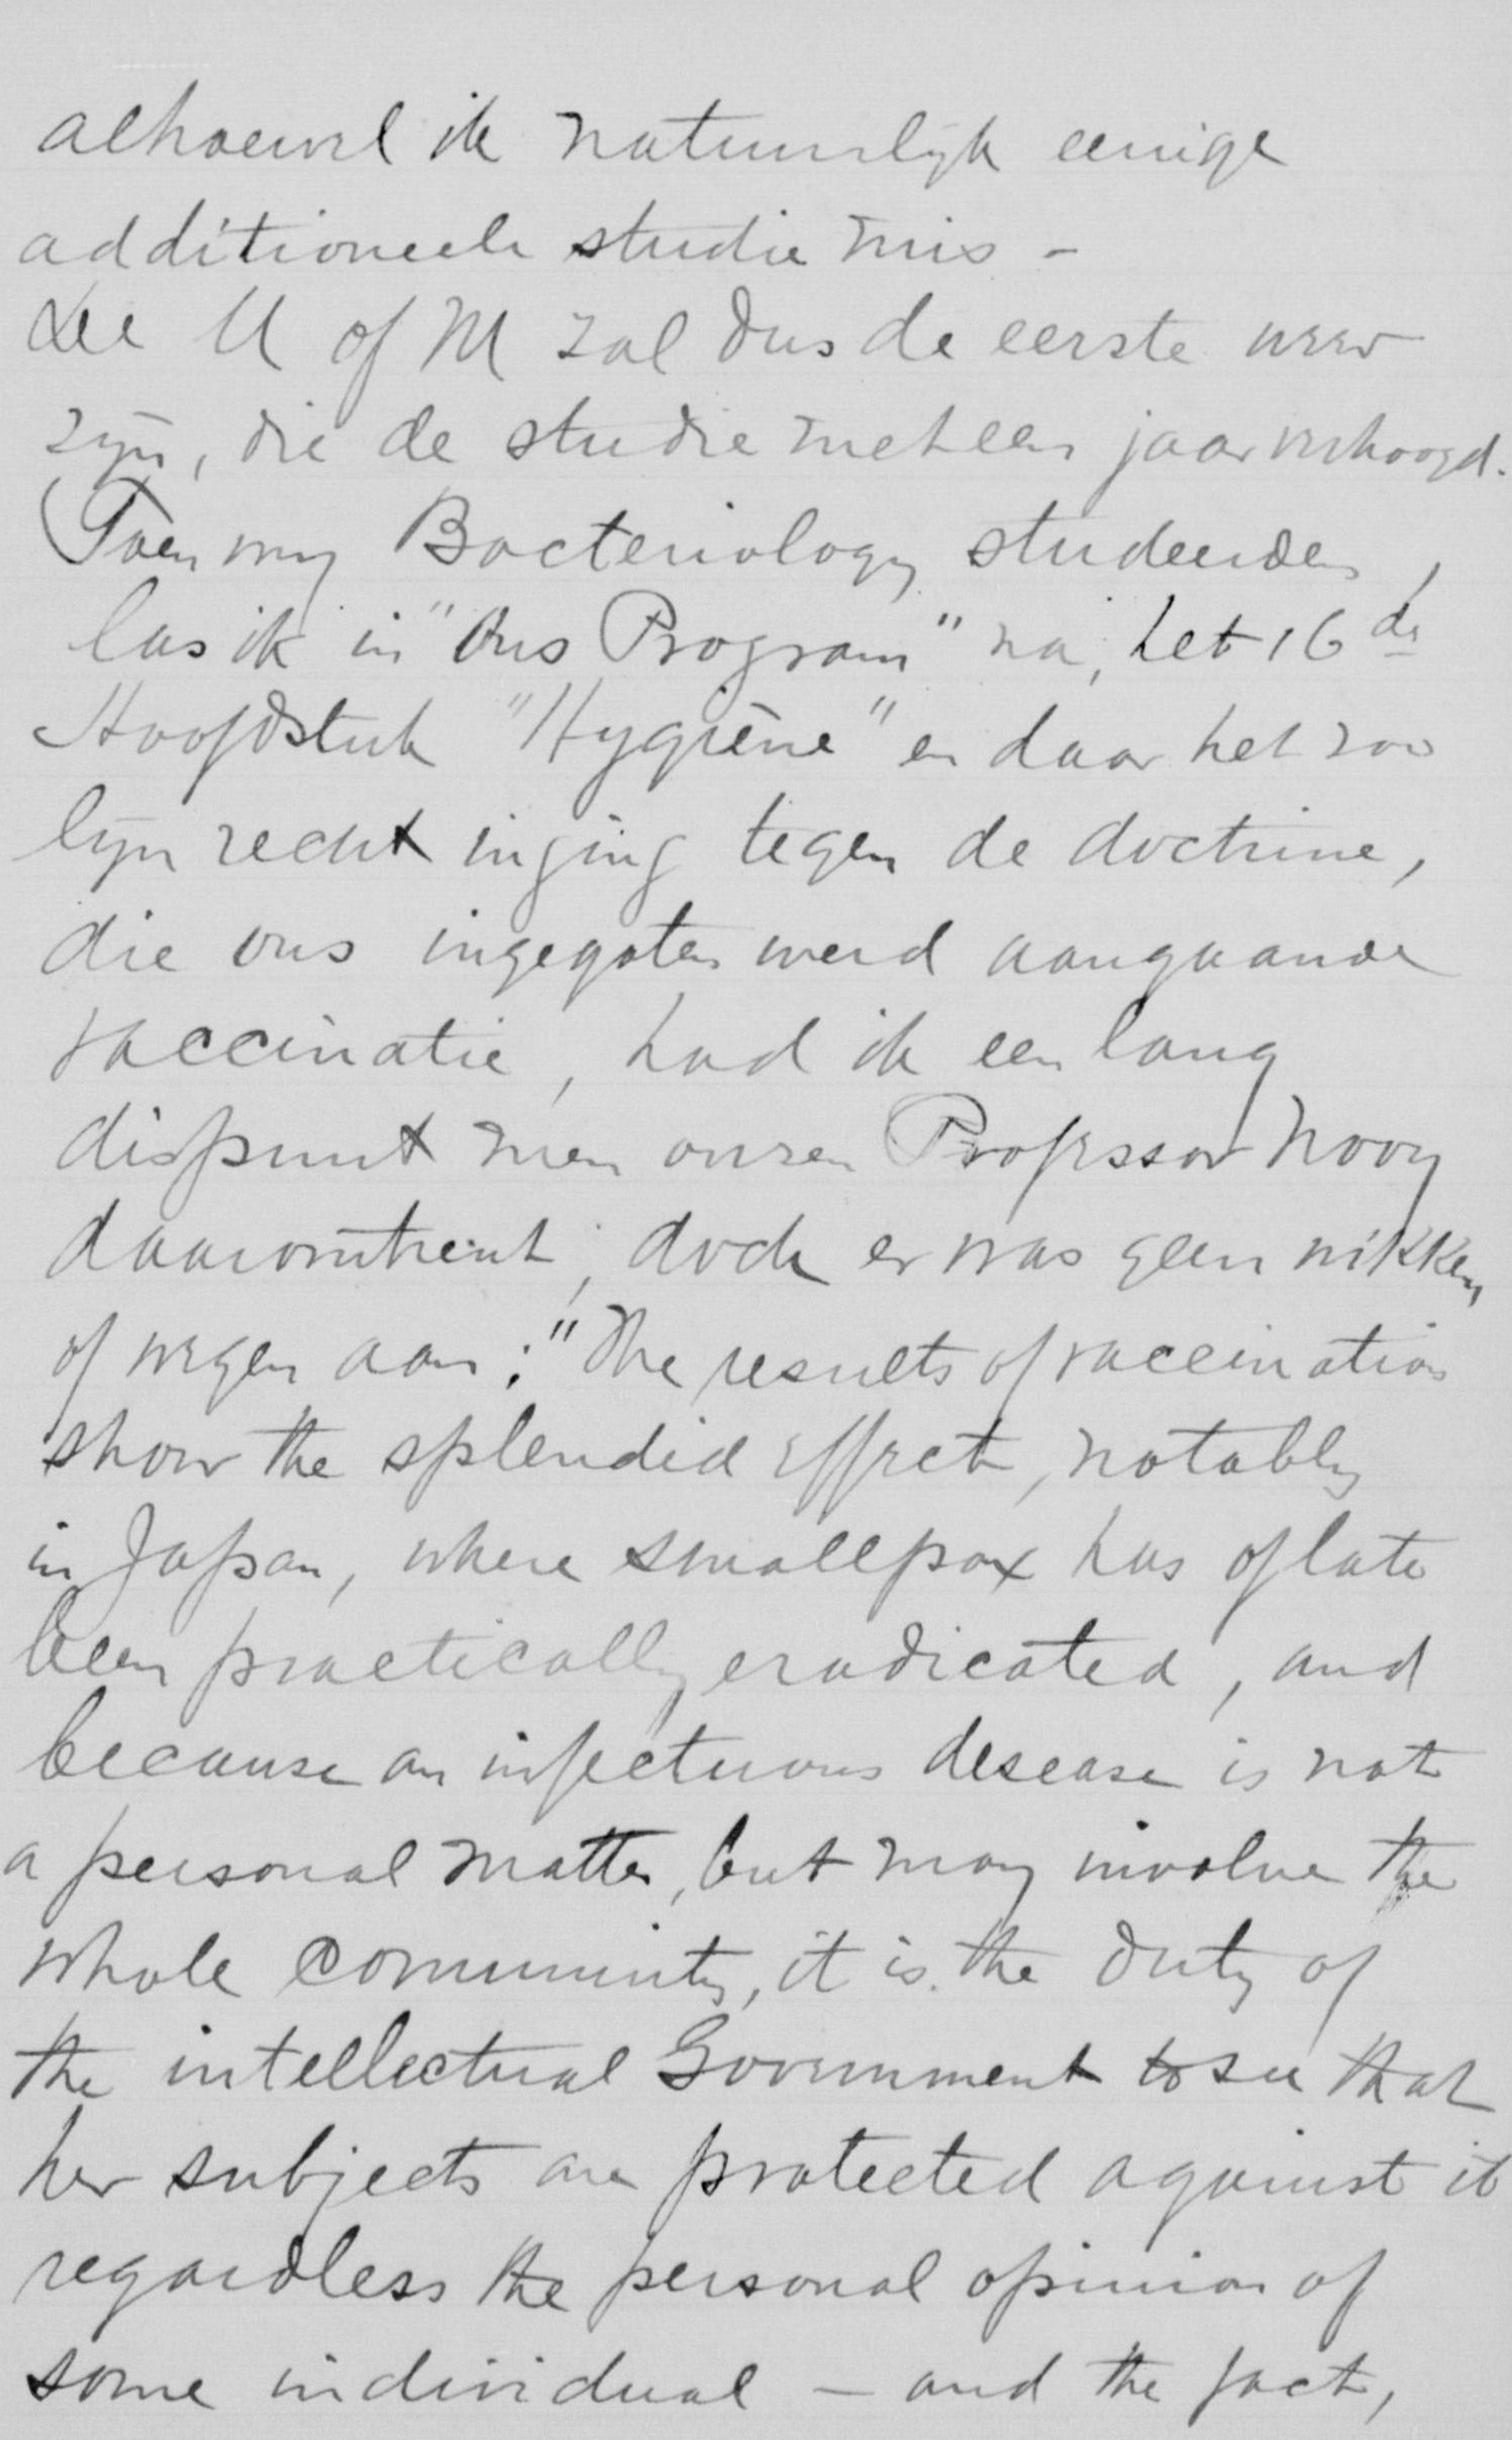 alhoewel ik natuurlijk eenige
additioneele studie mis -
De U of M zal dus de eerste weer
zijn, die de studie met een jaar verhoogd.
(Toen wij Bacteriology studeerden,
las ik in "Ons Program" na, het 16de
Hoofdstuk "Hygiène" en daar het zoo
lijn recht inging tegen de doctrine,
die ons ingegoten werd aangaande
vaccinatie, had ik een lang
dispuut men onzen Professor Novy
daaromtrent, doch er was geen wikken
of wegen aan: "The results of vaccination
show the splendid effect, notably
in Japan, where smallpox has of late
been practically eradicated, and
because an infectuous desease is not
a personal matter, but may involve the
whole community, it is the duty of
the intellectual Government to see that
her subjects are protected against it
regardless the personal opinion of
some individual - and the fact,